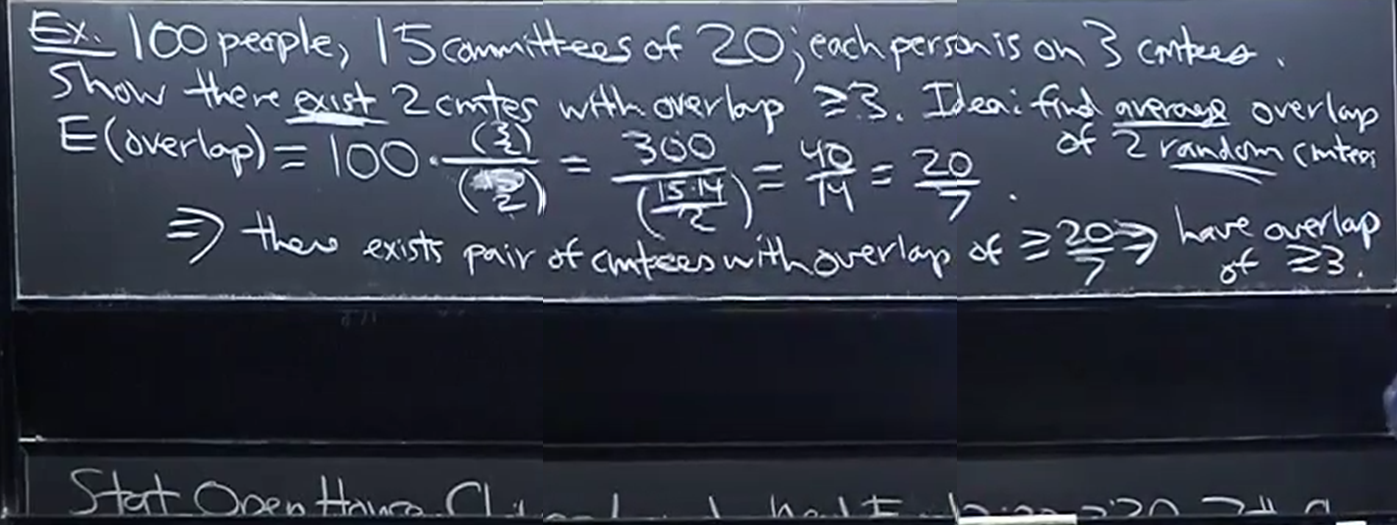 Ex. 100 people, 15 committees of 20; each person is on 3 cmtees.
Show there exist 2 cmtes with overlap ≥3. Idea: find average overlap
of 2 random cmtees
E(overlap) = 100 · (3 2)/(15 2) = 300/(15·14/2) = 40/14 = 20/7.
⇒ there exists pair of cmtees with overlap of ≥ 20/7 ⇒ have overlap
of ≥3.
Stat Open House